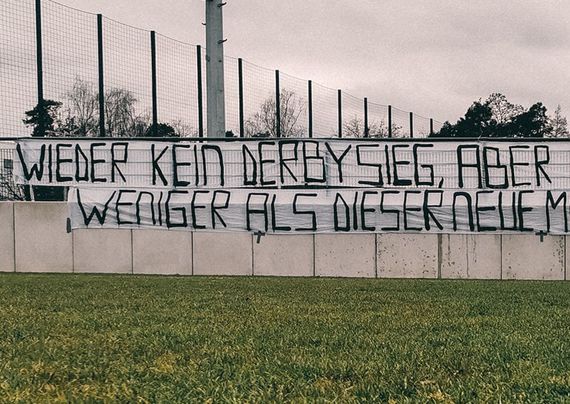 WIEDER KEIN DERBYSIEG, ABER
WENIGER ALS DIESER NEUE M